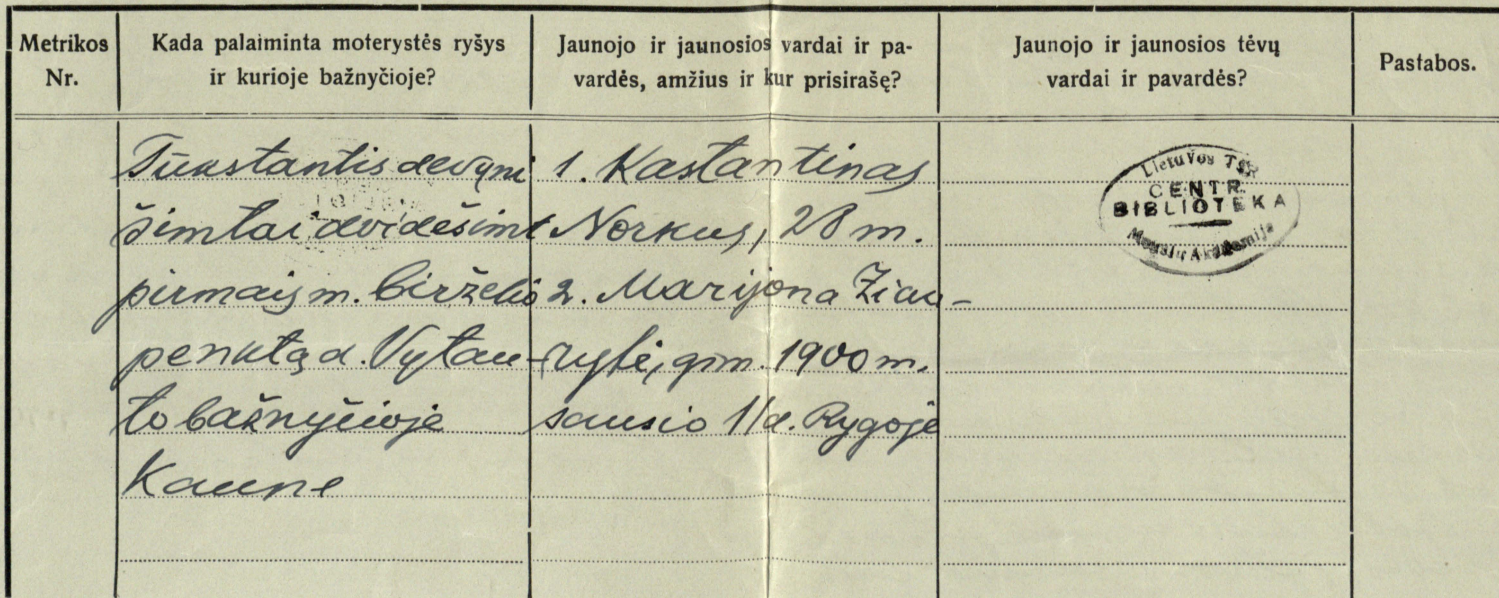 Metrikos Nr.
Kada palaiminta moterystės ryšys ir kurioje bažnyčioje?
Jaunojo ir jaunosios vardai ir pavardės, amžius ir kur prisirašę?
Jaunojo ir jaunosios tėvų vardai ir pavardės?
Pastabos.
Tūkstantis devyni
šimtai dvidešimt
pirmais m. birželio
penktą d. Vytau-
to bažnyčioje
Kaune
1. Kastantinas
Norkus, 28 m.
2. Marijona Žiau-
rytė, gim. 1900 m.
sausio 1/d. Rygoje
Lietuvos TSR
CENTR.
BIBLIOTEKA
Mokslų Akademija